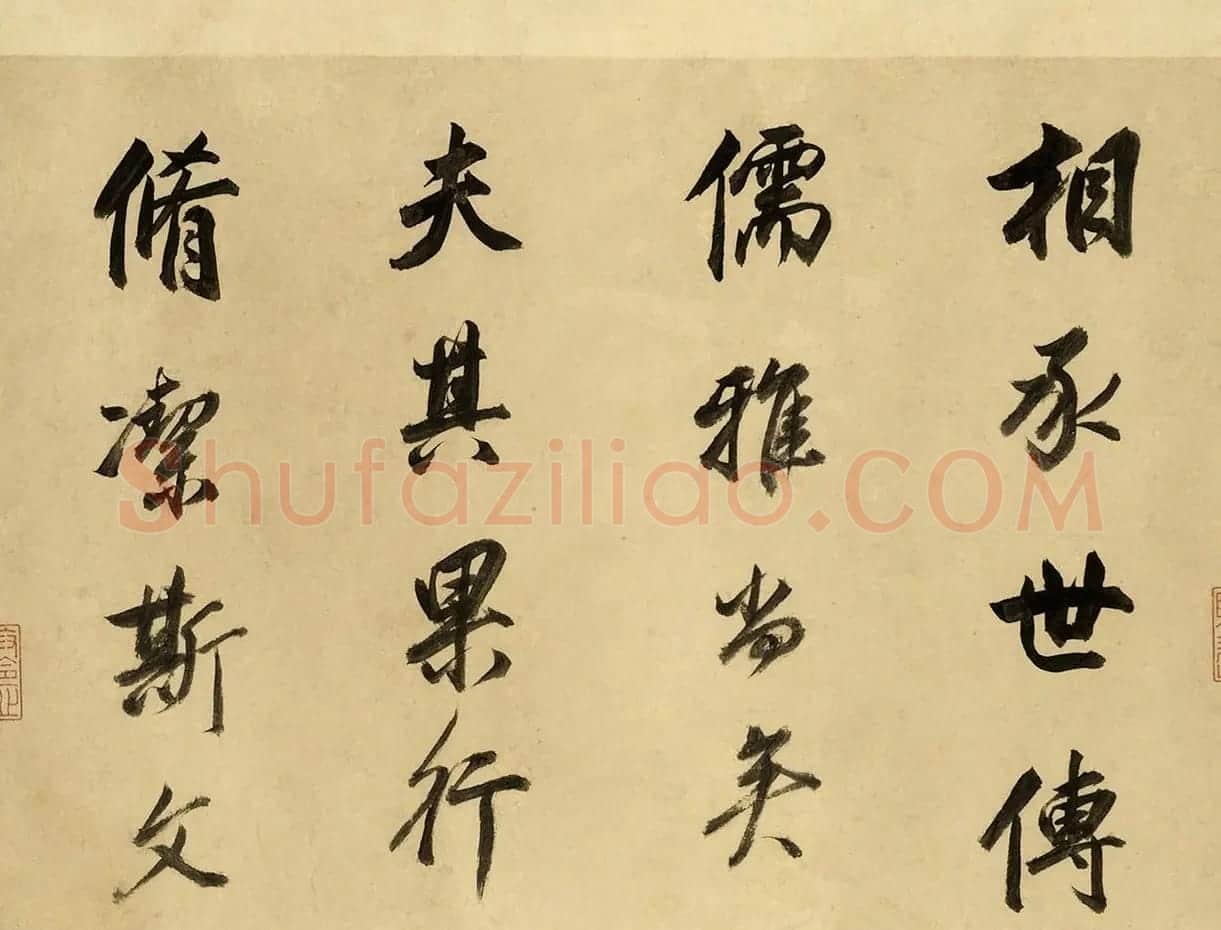 相承世傳
儒雅尚矣
夫其果行
脩潔斯文
Shufaziliao.COM